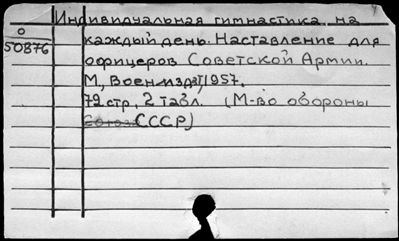 Индивидуальная гимнастика на
О
50876
каждый день. Наставление для
офицеров Советской Армии.
М, Воениздат, 1957.
72 стр, 2 табл. (М-во обороны
Союза СССР)